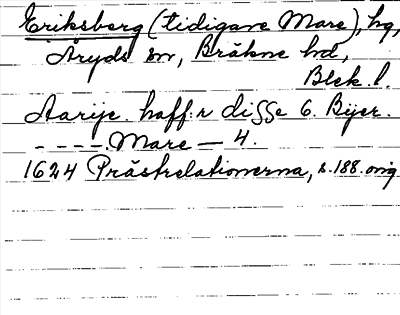 Eriksberg (tidigare Mare), hg,
Åryds sn, Bräkne hd,
Blek. l.
Aarije. haff:r disse 6. Bijer.
- - - - . Mare — 4.
1624 Prästrelationerna, s. 188. orig